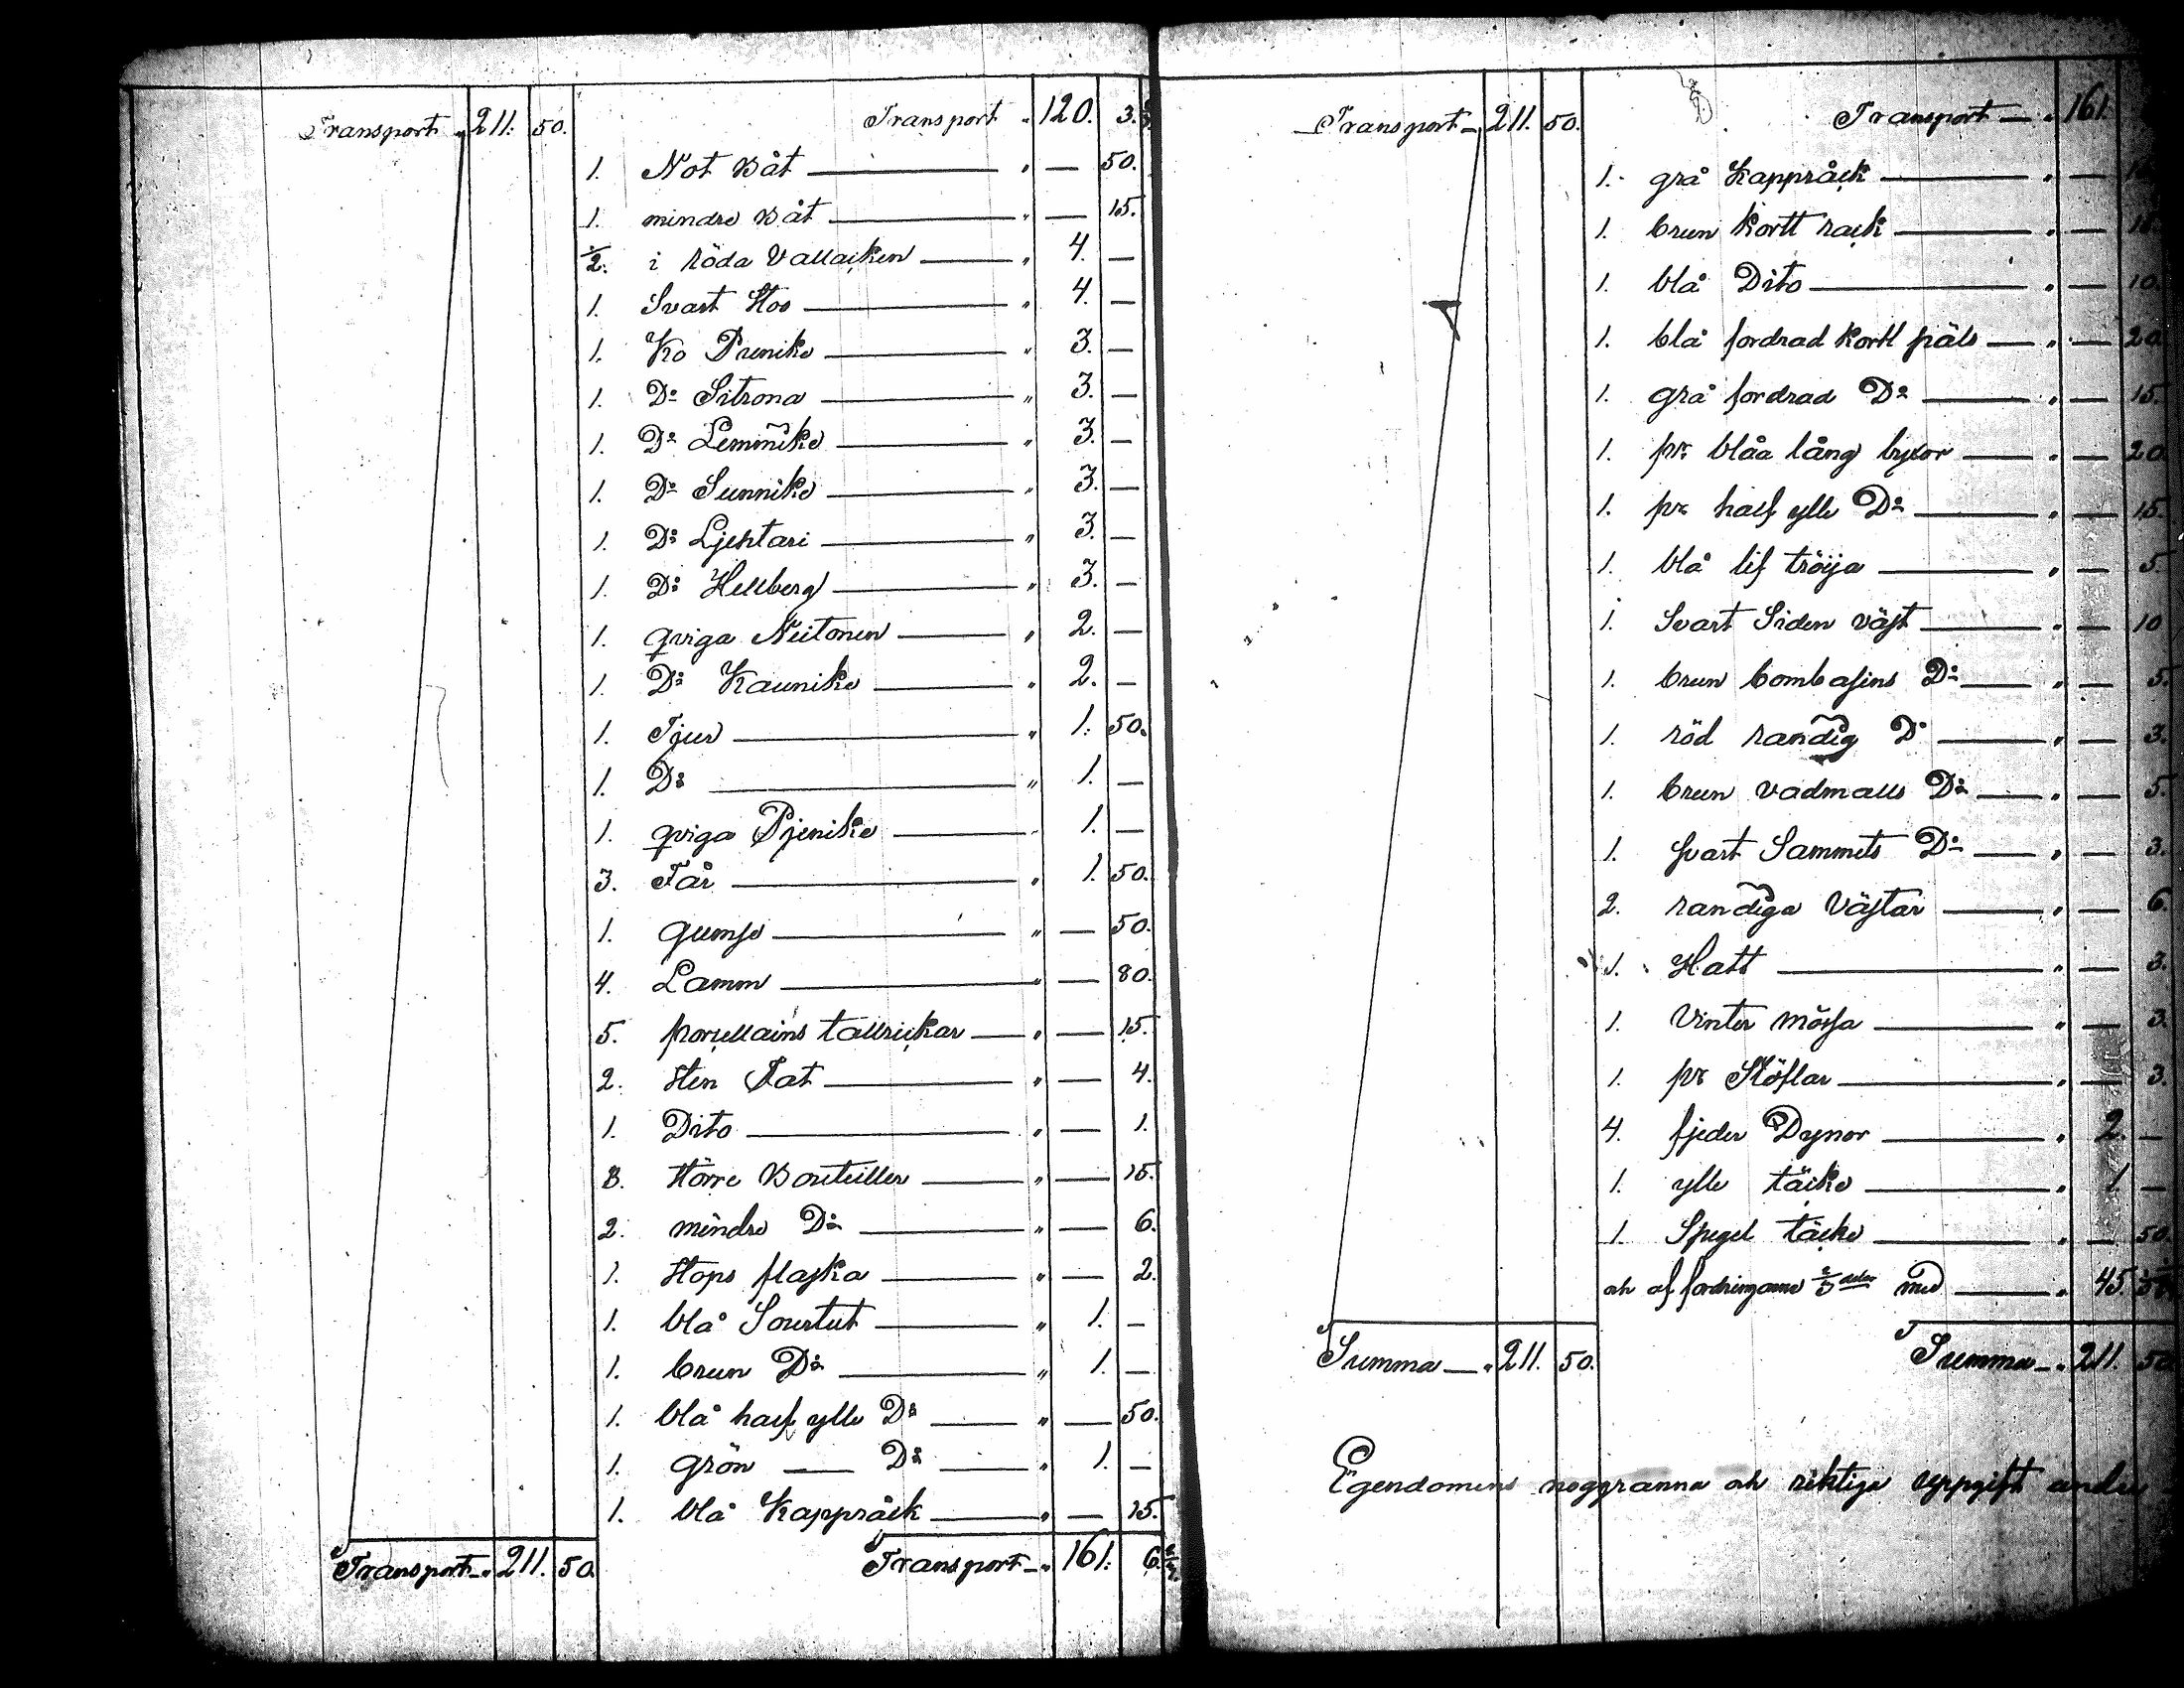 Transport " 211. 50.
Transport " 120. 3.
1. Not Båt " — 50.
1. mindre Båt " — 15.
1/2. i röda Vallacken " 4. —
1. Svart Sto " 4. —
1. Ko Prunike " 3. —
1. Do Sitrona " 3. —
1. Do Lemmike " 3. —
1. Do Sunnike " 3. —
1. Do Ljehtari " 3. —
1. Do Hellberg " 3. —
1. qviga Neitonen " 2. —
1. Do Kaunike " 2. —
1. Tjur " 1. 50.
1. Do " 1. —
1. qviga Pjenike " 1. —
3. Får " 1. 50.
1. gumse " — 50.
4. Lamm " — 80.
5. porcellains tallrickar " — 15.
2. sten Fat " — 4.
1. Dito " — 1.
8. större Bouteiller " — 15.
2. mindre Do " — 6.
1. stops flaska " — 2.
1. blå Sourtut " 1. —
1. brun Do " 1. —
1. blå half ylle Do " — 50.
1. grön — Do " 1. —
1. blå Kappråck " — 15.
Transport " 211. 50
Transport " 161. 6.
Transport " 211. 50.
Transport " 161.
1. grå Kappråck " —
1. brun kortt rack " —
1. blå Dito " — 10.
1. blå fordrad kortt päls " — 20
1. grå fordrad Do " — 15.
1. pr blåa lång byxor " — 20
1. pr half ylle Do " — 15.
1. blå lif tröija " — 5.
1. Svart Siden väst " — 10
1. brun bombasins Do " — 5.
1. röd randig Do " — 3.
1. brun vadmalls Do " — 5.
1. svart Sammets Do " — 3.
2. randiga Västar " — 6.
1. Hatt " — 3.
1. Vinter mössa " — 3.
1. pr Stöflar " — 3.
4. fjeder Dynor " 2. —
1. ylle täcke " 1. —
1. Spegel täcke " — 50.
och af fordringarne 2/3 delar med " 45.
Summa " 211. 50.
Summa " 211. 50
Egendomens noggranna och riktiga uppgift under